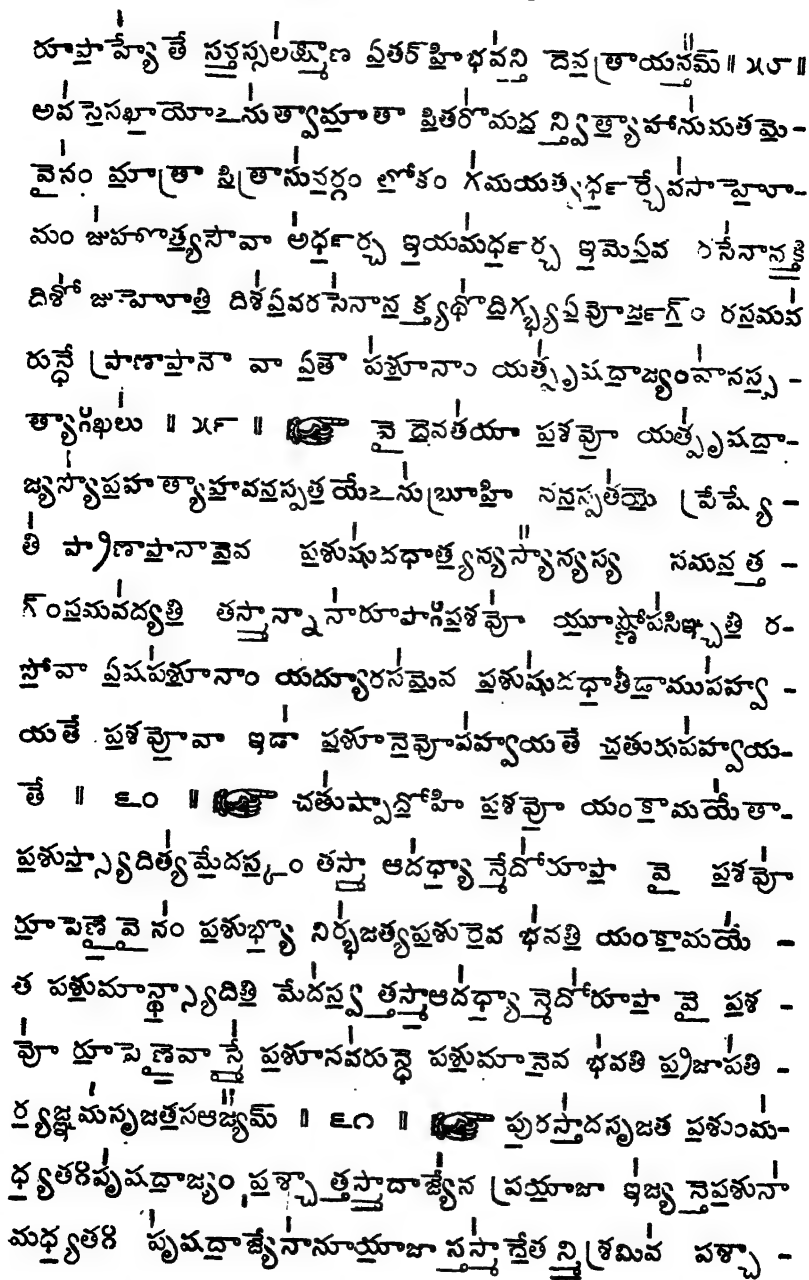 రూపాహ్యేతే సన్తస్సలక్ష్మాణ ఏతర్హిభవన్తి దేవత్రాయన్తమ్ ॥ ౫౮ ॥
అవసేసఖాయోఽనుత్వామాతా పితరోమదన్త్విత్యాహానుమతమే-
వైనం మాత్రా పిత్రాసువర్గం లోకం గమయత్యర్ధర్చేవసాహోహో-
మం జుహోత్యసౌవా అర్ధర్చ ఇయమర్ధర్చ ఇమేఏవ రసేనానక్తి
దిశో జుహోతి దిశఏవరసేనానక్త్యథోదిగ్భ్యఏవోర్జగ్ం రసమవ
రున్ధే ప్రాణాపానౌ వా ఏతౌ పశూనాం యత్పృషదాజ్యంవానస్ప-
త్యాఃఖలు ॥ ౫౯ ॥ వై దేవతయా పశవో యత్పృషదా-
జ్యస్యోపహత్యాహవనస్పతయేఽనుబ్రూహి వనస్పతయే ప్రేష్యే-
తి ప్రాణాపానావేవ పశుషుదధాత్యన్యస్యాన్యస్య సమవత్త-
గ్ంసమవద్యతి తస్మాన్నానారూపాఃపశవో యూష్ణోపసిఞ్చతి ర-
సోవా ఏషపశూనాం యద్యూరసమేవ పశుషుదధాతీడాముపహ్వ-
యతే పశవోవా ఇడా పశూనేవోపహ్వయతే చతురుపహ్వయ-
తే ॥ ౬౦ ॥ చతుష్పాదోహి పశవో యంకామయేతా-
పశుస్స్యాదిత్యమేదస్కం తస్మా ఆదధ్యాన్మేదోరూపా వై పశవో
రూపేణైవైనం పశుభ్యో నిర్భజత్యపశురేవ భవతి యంకామయే-
త పశుమాన్థ్స్యాదితి మేదస్వత్తస్మాఆదధ్యాన్మేదోరూపా వై పశ-
వో రూపేణైవాస్మే పశూనవరున్ధే పశుమానేవ భవతి ప్రజాపతి-
ర్యజ్ఞమసృజతసఆజ్యమ్ ॥ ౬౧ ॥ పురస్తాదసృజత పశుంమ-
ధ్యతఃపృషదాజ్యం పశ్చాత్తస్మాదాజ్యేన ప్రయాజా ఇజ్యన్తేపశునా
మధ్యతః పృషదాజ్యేనానూయాజా స్తస్మాదేతన్మిశ్రమివ పశ్చా-